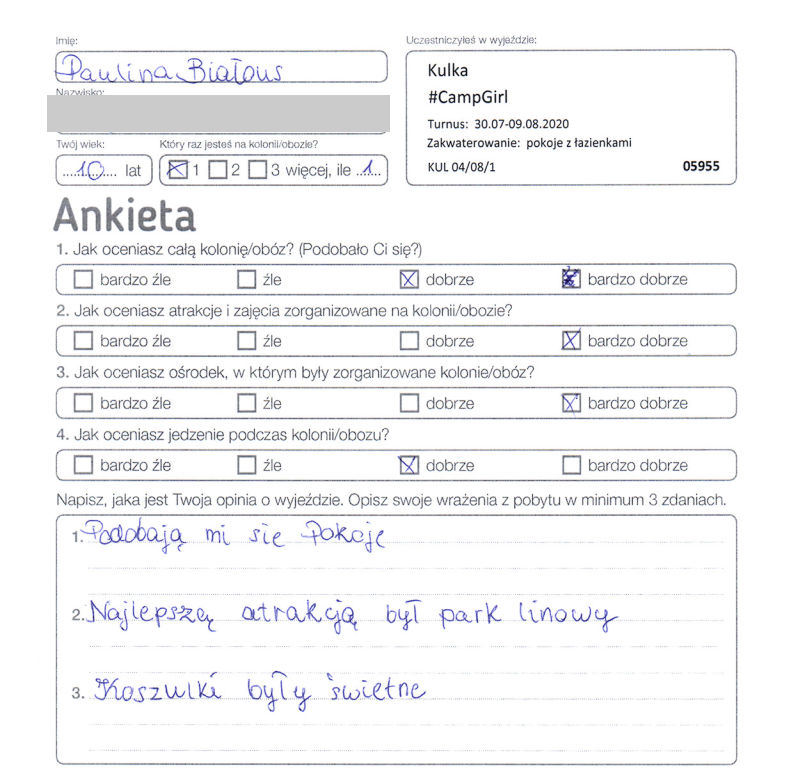 Imię:
Paulina Białous
Nazwisko:
Uczestniczyłeś w wyjeździe:
Kulka
#CampGirl
Turnus: 30.07-09.08.2020
Zakwaterowanie: pokoje z łazienkami
KUL 04/08/1 05955
Twój wiek: Który raz jesteś na kolonii/obozie?
....10.... lat 1 2 3 więcej, ile ..1..
Ankieta
1. Jak oceniasz całą kolonię/obóz? (Podobało Ci się?)
bardzo źle źle dobrze bardzo dobrze
2. Jak oceniasz atrakcje i zajęcia zorganizowane na kolonii/obozie?
bardzo źle źle dobrze bardzo dobrze
3. Jak oceniasz ośrodek, w którym były zorganizowane kolonie/obóz?
bardzo źle źle dobrze bardzo dobrze
4. Jak oceniasz jedzenie podczas kolonii/obozu?
bardzo źle źle dobrze bardzo dobrze
Napisz, jaka jest Twoja opinia o wyjeździe. Opisz swoje wrażenia z pobytu w minimum 3 zdaniach.
1. Podobają mi się Pokoje
2. Najlepszą atrakcją był park linowy
3. Koszulki były świetne